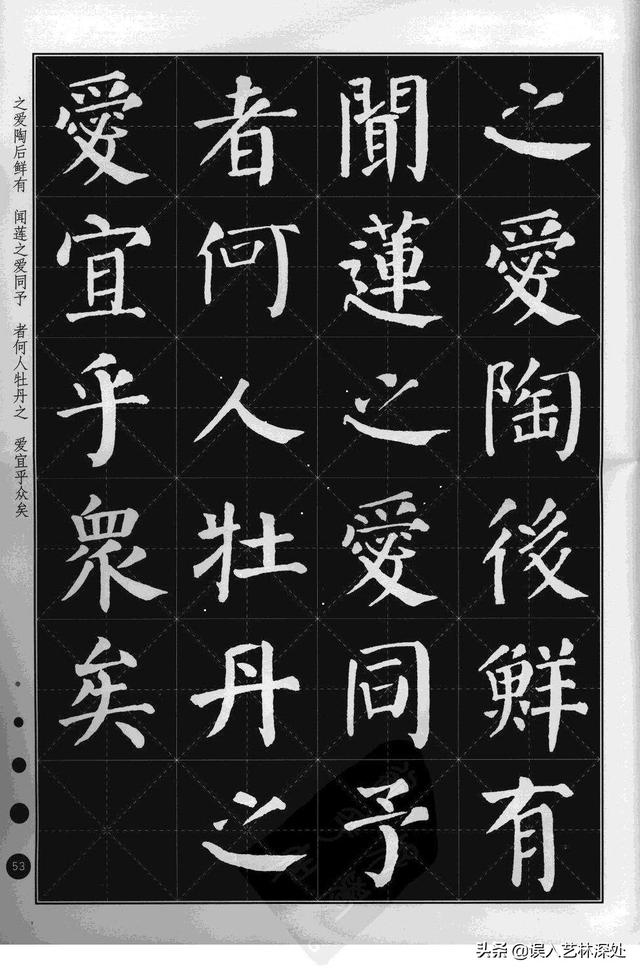 之愛陶後鮮有
聞蓮之愛同予
者何人牡丹之
愛宜乎衆矣
之爱陶后鲜有 闻莲之爱同予 者何人牡丹之 爱宜乎众矣
53
头条@误入艺林深处